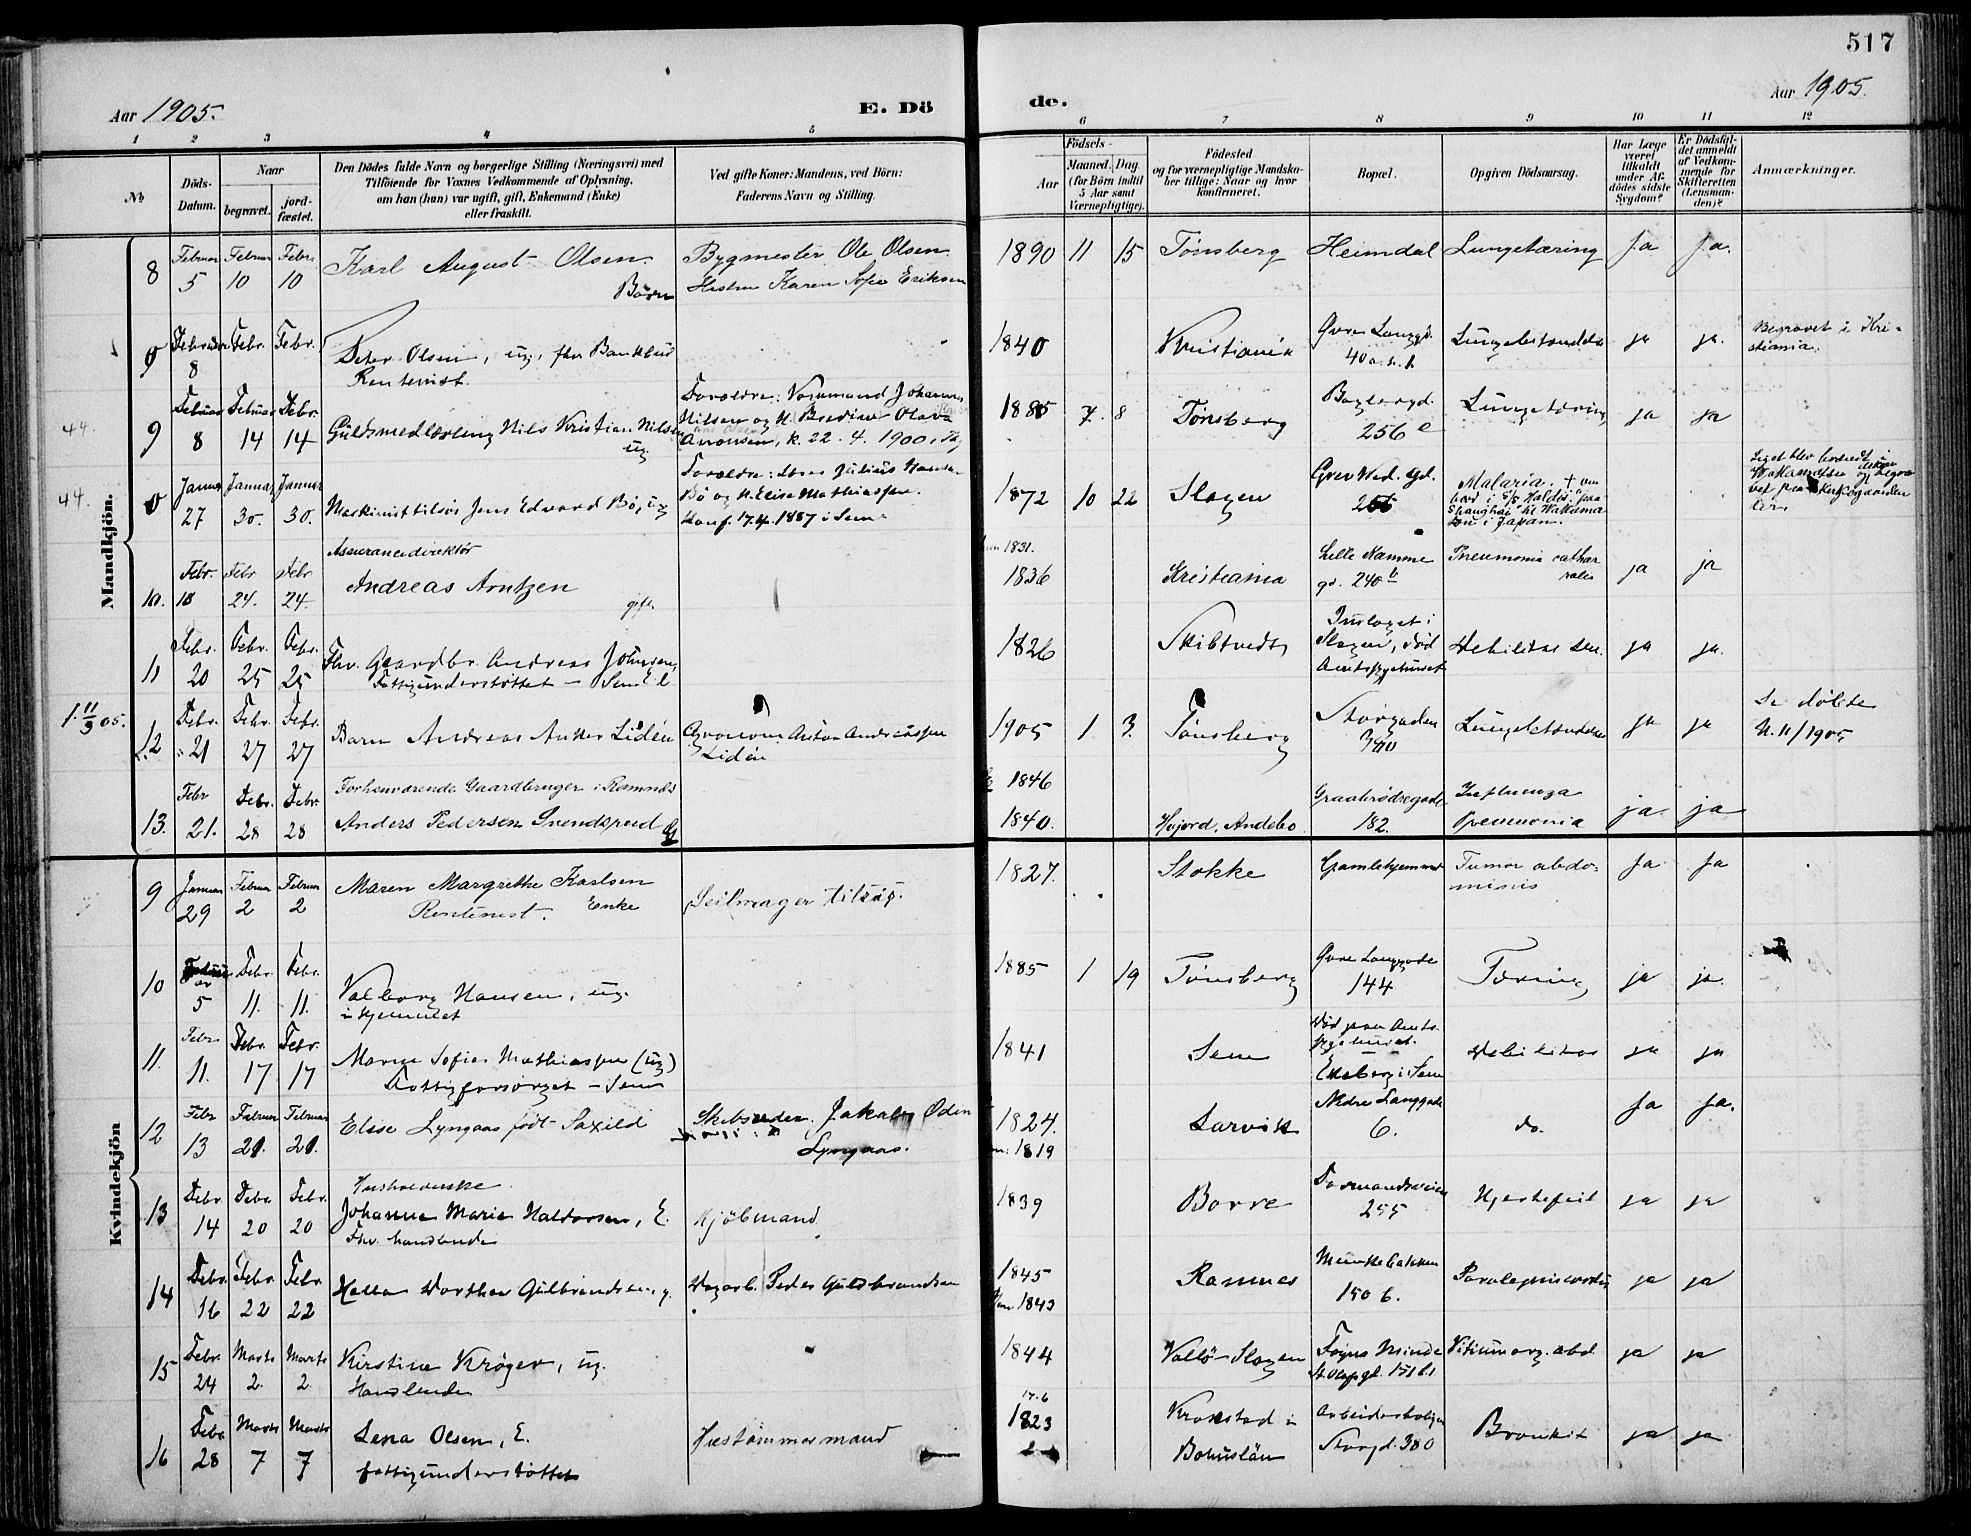 517
Aar 1905.
E. Dö
de.
Aar 1905.
1 2 3 4 5
6 7 8 9 10 11 12
No
Döds-Datum.
Naar
begravet.
jordfæstet.
Den Dödes fulde Navn og borgerlige Stilling (Næringsvei) med
Tilföiende for Voxnes Vedkommende af Oplysning,
om han (hun) var ugift, gift, Enkemand (Enke)
eller fraskilt.
Ved gifte Koner: Mandens, ved Börn:
Faderens Navn og Stilling.
Födsels-
Aar
Maaned. Dag.
(for Börn indtil
5 Aar samt
Værnepligtige).
Födested
og for værnepligtige Mandskaber tillige: Naar og hvor
konfirmeret.
Bopæl.
Opgiven Dödsaarsag.
Har Læge
været
tilkaldt
under Afdödes sidste
Sygdom?
Er Dödsfaldet anmeldt
af Vedkommende for
Skifteretten
(Lensmanden)?
Anmærkninger.
Mandkjön.
8 Februar 5 Februar 10 Febr. 10 Karl August Olsen Barn
Bygmester Ole Olsen
Hustru Karen Sofie Eriksen
1890 11 15 Tønsberg Heimdal Lungetæring Ja Ja.
0 Februar 8 Febr. Febr. Peter Olsen, ug. fhv. Bankbud
Rentenist.
1840 Kristiania Øvre Langgd. ja ja. Begravet i Kristiania.
44.
9 Februar 8 Februar 14 Febr. 14 Guldsmedlærling Nils Kristian Nilsen ug.
Forældre: Johannes
Nilsen og H. Bredine Olava
k. 22. 4. 1900 i Tbg
1885 7. 8 Tønsberg 256 c Lungetæring ja ja
44.
0 Januar 27 Januar 30. Januar 30. Maskinist tilsøs Jens Edvard Bø, ug
Forældre: Julius Hansen
Bø og H. Elise Mathiassen.
Konf. 17.4. 1887 i Sem
1872 10 22 Slagen Grev Wed. gd. Malaria. + ombord i S/S "Haldis" paa
Shanghai til Wakamatsu i Japan.
Liget blev
10. Febr. 18 Febr 24. Febr 24. Assurancedirektør
Andreas Arntzen gift
1831.
1836 Kristiania Lille Namme
gd. 240 b Pneumonia catharralis ja ja
11 Febr. 20 Febr. 25 Febr. 25 Fhv. Gaardbr. Andreas Johnsen,
Fattigunderstøttet - Sem
1826 Skibtvedt Indlaget i
Slagen, død
Amtssygehuset Debilitas sen. ja ja.
1. 11/3 05.
12 Febr. 21 Febr. 27 Febr. 27 Barn Andreas Anker Lidén
Agronom Anton Andreassen
Lidén
1905 1 3. Tønsberg Storgaden ja ja Se døbte
N. 11/1905
13. Febr 21. Febr. 28 Febr. 28 Forhenværende Gaardbruger i Ramnæs
Anders Pedersen
1846
1840. Andebo Graabrødregade
182. Influenza
Pneumonia ja. ja
Kvindekjön
9 Januar 29 Februar 2 Februar 2 Maren Margrethe Karlsen
Rentenist. Enke
Seilmager tilsøs.
1827. Stokke Gamlehjemmet Tumor abdominis Ja Ja
10 Februar 5 Febr. 11. Febr. 11. Valborg Hansen, ug.
i Hjemmet
1885 1 19 Tønsberg Øvre Langgade
144 Tæring ja ja.
11. Febr 11. Febr. 17 Febr. 17 Maren Sofie Mathiassen (ug)
Fattigforsørget - Sem
1841 Sem Død paa Amtssygehuset.
Ekeberg i Sem Debilitas ja ja
12 Febr 13 Februar 21. Februar 21. Elise Lyngaas født Saxild
Skibsreder Jakob Oden
Lyngaas.
1824.
1819 Larvik Nedre Langgade
6. do. Ja Ja.
13 Febr. 14 Febr. 20 Febr. 20 Husholderske
Johanne Marie Haldorsen, E.
Fhv. handlende
Kjøbmand
1839 Borre Farmandsveien
255 Hjertefeil ja ja
14 Febr. 16 Febr. 22 Febr. 22 Dorthea Gulbrandsen, g.
Peder Guldbrandsen
1845
1843 Ramnes Munkebakken
150 b. ja ja
15 Febr. 24 Marts 2. Marts 2. Kirstine Krøger, ug.
Handlende
1844 Vallø - Slagen Foyns Minde
St. Olafsgd. Vitium org. abd. ja ja
16 Febr 28 Marts 7 Marts 7 Lena Olsen, E.
fattigunderstøttet
Hustømmermand
17.6
1823 Krokstad i
Bohuslän Arbeiderboliger
Storgd. 380 Bronkit ja ja